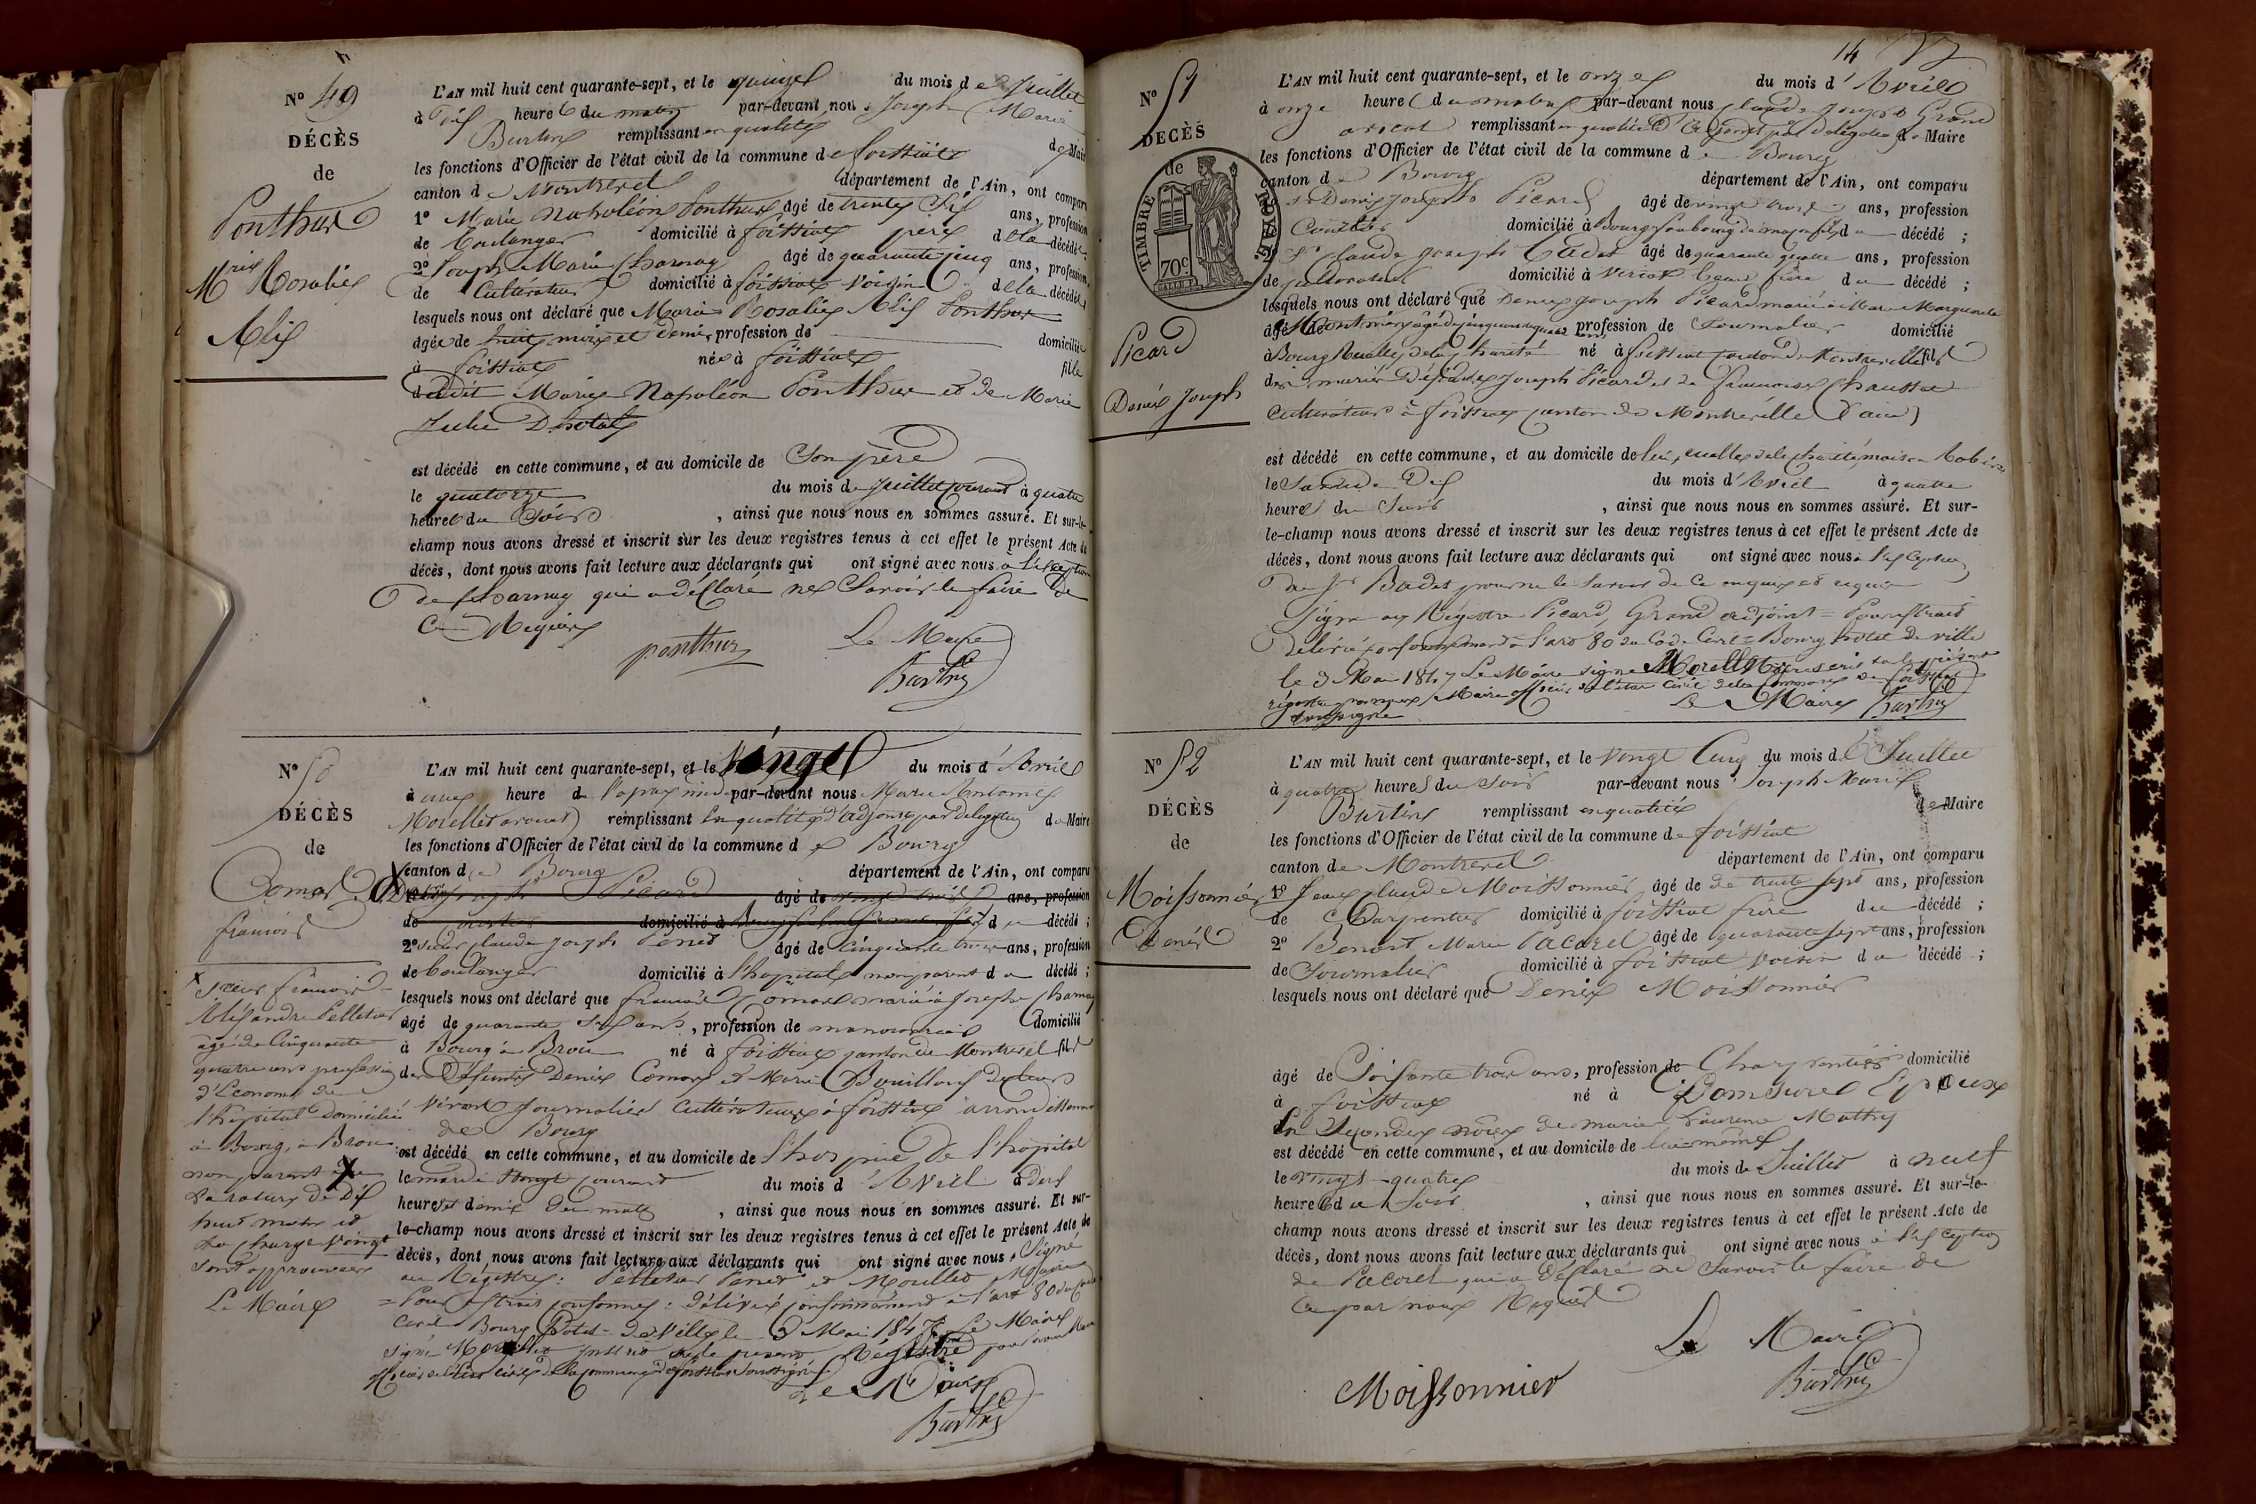 N° 49
DÉCÈS
de
Ponthus
Marie Rosalie
Alix
L'AN mil huit cent quarante-sept, et le quinze du mois de Juillet
à dix heure du matin par-devant nous Joseph Marie
Burtin remplissant en qualité de Maire
les fonctions d'Officier de l'état civil de la commune de foissiat
canton de Montrevel département de l'Ain, ont comparu
1° Marie Napoléon Ponthus âgé de trente six ans, profession
de Boulanger domicilié à foissiat père de la décédée
2° Joseph Marie Charnay âgé de quarante cinq ans, profession
de Cultivateur domicilié à foissiat voisin de la décédée
lesquels nous ont déclaré que Marie Rosalie Alix Ponthus
âgée de huit mois et demi, profession de domiciliée
à foissiat née à foissiat fille
dudit Marie Napoléon Ponthus et de Marie
Julie
est décédé en cette commune, et au domicile de Son père
le quatorze du mois de Juillet courant à quatre
heures du Soir , ainsi que nous nous en sommes assuré. Et sur-le-
champ nous avons dressé et inscrit sur les deux registres tenus à cet effet le présent Acte de
décès, dont nous avons fait lecture aux déclarants qui ont signé avec nous à l'exception
de Charnay qui a déclaré ne Savoir le faire de
ce Requis
ponthus Le Maire
Burtin
N° 50
DÉCÈS
de
Comas
francois
L'AN mil huit cent quarante-sept, et le Vingt du mois d'Avril
à une heure de l'après midi par-devant nous Marie Antoine
Morellet avocat remplissant en qualité d'adjoint par délégation du Maire
les fonctions d'Officier de l'état civil de la commune de Bourg
canton de Bourg département de l'Ain, ont comparu
Joseph Picard âgé de vingt trois ans, profession
de domicilié à Bourg du décédé ;
2° sieur claude Joseph Penet âgé de cinquante trois ans, profession
de boulanger domicilié à l'hopital non parent du décédé ;
lesquels nous ont déclaré que francois Comas marié à Josephe Charnay
âgé de quarante six ans, profession de manouvrier domicilié
à Bourg à Brou né à foissiat canton de Montrevel fils
de Défunts Denis Comas et Marie Bouillon de leur
vivant Journalier Cultivateurs à foissiat arrondissement
de Bourg
est décédé en cette commune, et au domicile de l'hospice de l'hopital
le mardi Vingt courant du mois d'Avril à dix
heures et demie du matin , ainsi que nous nous en sommes assuré. Et sur-
le-champ nous avons dressé et inscrit sur les deux registres tenus à cet effet le présent Acte de
décès, dont nous avons fait lecture aux déclarants qui ont signé avec nous. Signé
au Registre : Pelletier Penet et Morellet
Pour extrait conforme : Délivré conformément à l'art 80 du code
Civil Bourg hotel de Ville le 3 Mai 1847 Le Maire
signé Morellet Inscrit sur le présent Régistre par nous Maire
officier de l'état civil de la commune de foissiat soussigné
Le Maire
Burtin
sieur francois
Alexandre Pelletier
âgé de Cinquante
quatre ans profession
d'Econome de
l'hopital domicilié
à Bourg, à Brou
non parent
la rature de Dix
huit mots et
la charge Vingt
sont approuvées
Le Maire
14
N° 51
DÉCÈS
de
TIMBRE ROYAL
70c
Picard
Denis Joseph
L'AN mil huit cent quarante-sept, et le onze du mois d'Avril
à onze heures du matin par-devant nous claude Joseph Grand
avocat remplissant en qualité d'adjoint par délégation de Maire
les fonctions d'Officier de l'état civil de la commune de Bourg
canton de Bourg département de l'Ain, ont comparu
1° Denis Joseph Picard âgé de vingt trois ans, profession
domicilié à Bourg faubourg de macon fils du décédé ;
2° claude Joseph Badet âgé de quarante quatre ans, profession
de cultivateur domicilié à beau frère du décédé ;
lesquels nous ont déclaré que Denis Joseph Picard marié à Marie Marguerite
âgé de profession de Journalier domicilié
à Bourg Ruelle de la charité né à foissiat canton de Montrevel fils
des mariés Défunts Joseph Picard et de francoise
Cultivateurs à foissiat canton de Montrevelle (ain)
est décédé en cette commune, et au domicile de lui, ruelle de la charité, maison
le Samedi Dix du mois d'Avril à quatre
heures du Soir , ainsi que nous nous en sommes assuré. Et sur-
le-champ nous avons dressé et inscrit sur les deux registres tenus à cet effet le présent Acte de
décès, dont nous avons fait lecture aux déclarants qui ont signé avec nous à l'exception
de Sr Badet pour ne le savoir de ce enquis et requis
Signé au Registre Picard, Grand adjoint = Pour extrait
Délivré conformément à l'art 80 du Code Civil = Bourg hotel de ville
le 3 Mai 1847 Le Maire signé Morellet Transcrit sur le présent
régistre par nous Maire officier de l'état Civil de la commune de foissiat
soussigné Le Maire Burtin
N° 52
DÉCÈS
de
Moissonnier
Denis
L'AN mil huit cent quarante-sept, et le vingt Cinq du mois de Juillet
à quatre heures du soir par-devant nous Joseph Marie
Burtin remplissant en qualité de Maire
les fonctions d'Officier de l'état civil de la commune de foissiat
canton de Montrevel département de l'Ain, ont comparu
1° Jean claude Moissonnier âgé de de trente sept ans, profession
de Charpentier domicilié à foissiat frère du décédé ;
2° Benoit Marie Pacoret âgé de quarante sept ans, profession
de Journalier domicilié à foissiat voisin du décédé ;
lesquels nous ont déclaré que Denis Moissonnier
âgé de Soixante trois ans, profession de Charpentier domicilié
à foissiat né à Domsurel Epoux
en Secondes noces de marie Laurence Mathy
est décédé en cette commune, et au domicile de lui même
le vingt-quatre du mois de Juillet à neuf
heures du Soir , ainsi que nous nous en sommes assuré. Et sur-le-
champ nous avons dressé et inscrit sur les deux registres tenus à cet effet le présent Acte de
décès, dont nous avons fait lecture aux déclarants qui ont signé avec nous à l'exception
de Pacoret qui a déclaré ne Savoir le faire de
ce par nous Requis
Le Maire
Moissonnier Burtin